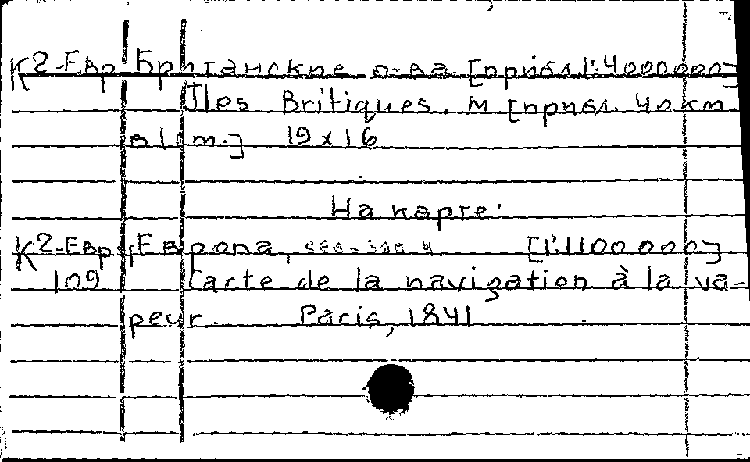 К2-Евр Британские о-ва [прибл. 1:4000000]
Iles Britiques. М [прибл. 40 км
в 1 см.] 19x16
На карте:
К2-Евр Европа, [1:1100.000]
109 Carte de la navigation à la va-
peur. Paris, 1841